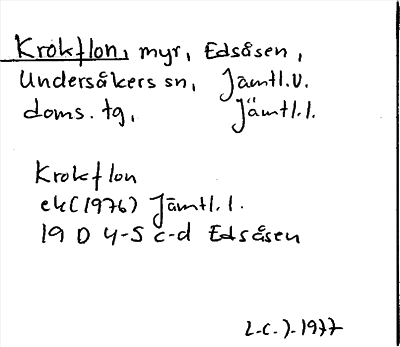 Krokflon, myr, Edsåsen,
Undersåkers sn, Jämtl.v.
doms. tg, Jämtl.l.
Krokflon
ek(1976) Jämtl.l.
19 D 4-5 c-d Edsåsen
1977